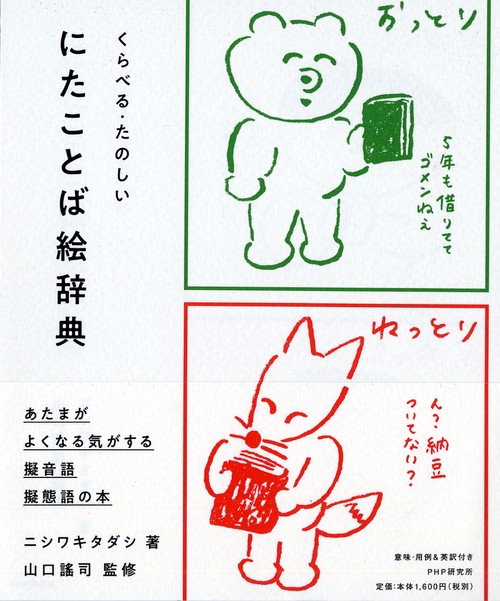 くらべる・たのしい
にたことば絵辞典
おっとり
5年も借りてて
ゴメンねえ
ねっとり
ん?納豆
ついてない?
あたまが
よくなる気がする
擬音語
擬態語の本
ニシワキタダシ 著
山口謠司 監修
意味・用例&英訳付き
PHP研究所
定価:本体1,600円(税別)